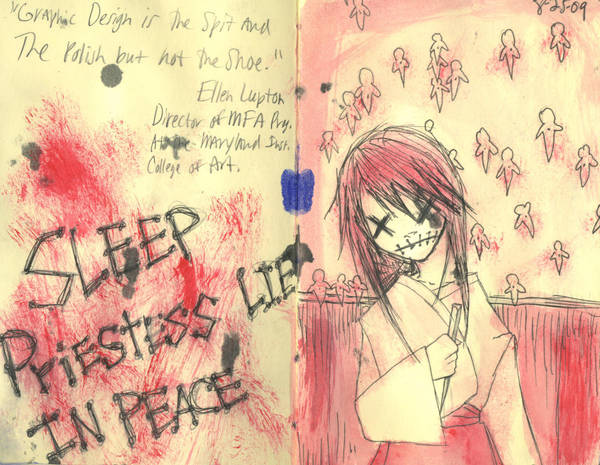 "Graphic Design is the Spit And
The Polish but not the shoe."
Ellen Lupton
Director of MFA Prg.
At the Maryland Inst.
College of Art.
8-25-09
SLEEP
PRiESTESS LIE
IN PEACE